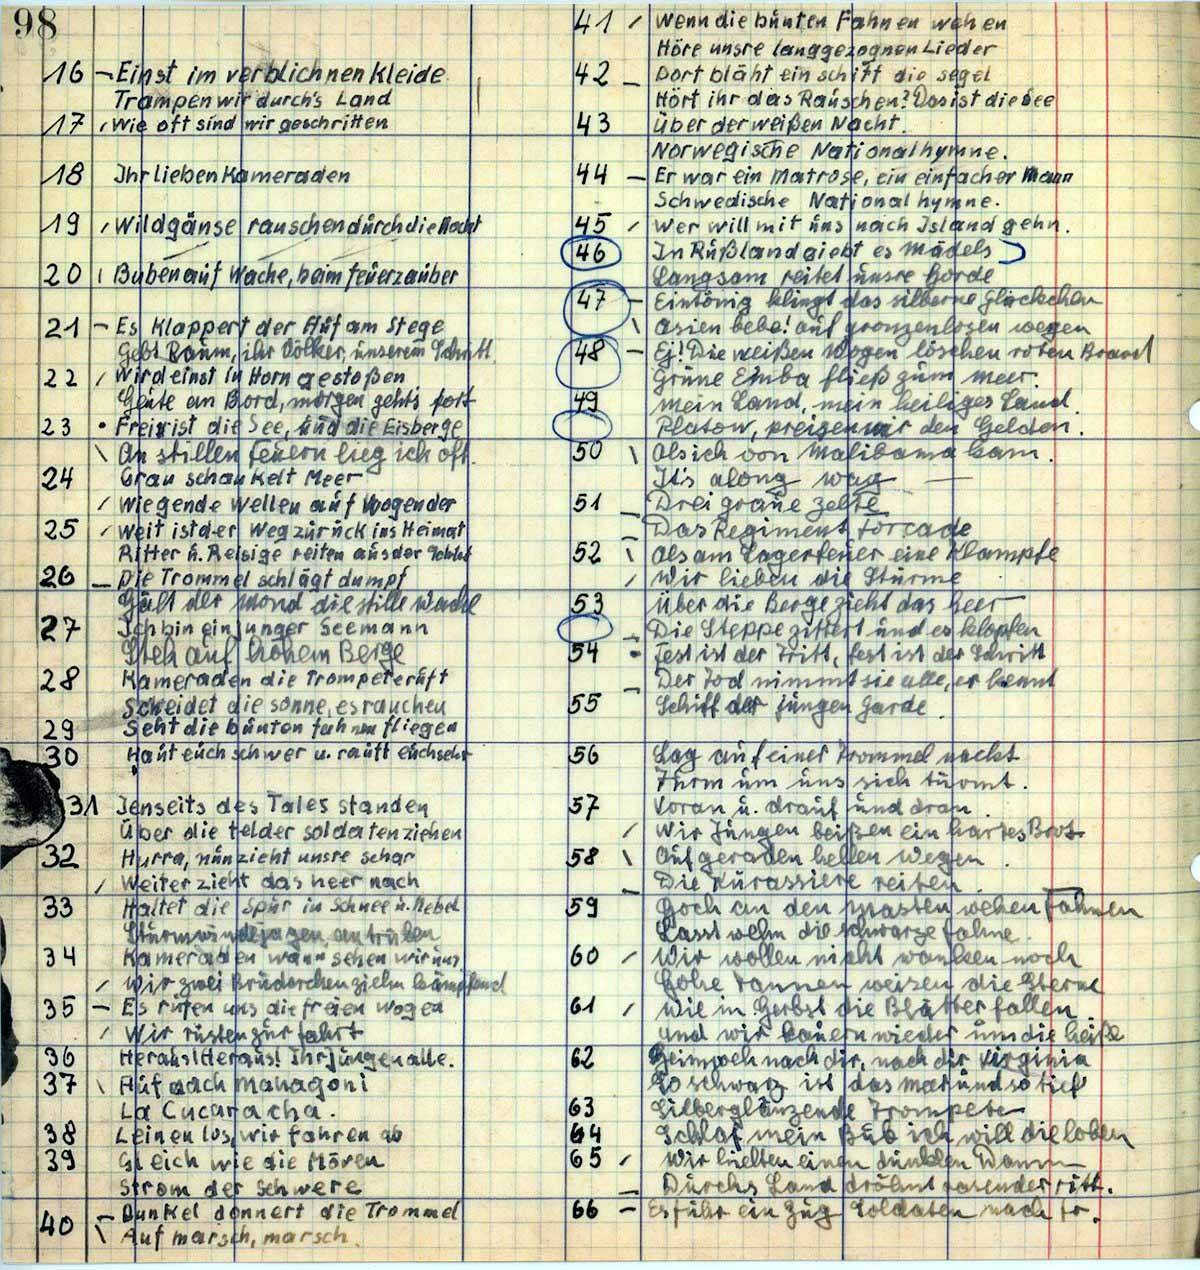 98
16 – Einst im verblichnen Kleide
Trampen wir durch's Land
17 / Wie oft sind wir geschritten
18 Ihr lieben Kameraden
19 / Wildgänse rauschen dürch die Nacht
20 Buben auf Wache, beim feuerzauber
21 – Es Klappert der Hüf am Stege
Gebt Raum, ihr Völker, ünserem Schritt
22 / Wird einst in Horn gestoßen
Heute an Bord, morgen gehts fort
23 • Frei ist die See, und die Eisberge
\ An stillen Feuern lieg ich oft
24 Grau schaukelt Meer
/ Wiegende Wellen auf wogender
25 / Weit ist der Weg zürück ins Heimat
Ritter ü. Reisige reiten aus der
26 – Die Trommel schlägt dumpf
Hält der Mond die stille Wacht
27 Ich bin ein junger Seemann
Steh auf hohem Berge
28 Kameraden die Trompete rüft
Scheidet die sonne, es rauchen
29 Seht die bünten fahnen fliegen
30 Haut eüch schwer u. rauft eüch sehr
31 Jenseits des Tales standen
Über die felder soldaten ziehen
32 Hurra, nün zieht unsre schar
/ Weiter zieht das heer nach
33 Haltet die Spür in Schnee ü. Nebel
Stürmwinde jagen, an trüben
34 Kameraden wann sehen wir uns
/ Wir zwei Brüderchen ziehn kämpfend
35 – Es rüfen uns die freien Wogen
/ Wir rüsten zur fahrt
36 Heraus! Heraus! Ihr jüngen alle.
37 \ Aüf nach Mahagoni
La Cucaracha.
38 Leinen los, wir fahren ab
39 Gleich wie die Möven
Strom der Schwere
40 – Dunkel donnert die Trommel
\ Auf marsch, marsch.
41 / Wenn die bünten Fahnen wehen
Höre unsre langgezognen Lieder
42 – Dort bläht ein schiff die segel
Hört ihr das Raüschen? Das ist die See
43 Über der weißen Nacht.
Norwegische Nationalhymne.
44 – Er war ein Matrose, ein einfacher Mann
Schwedische Nationalhymne.
45 / Wer will mit üns nach Island gehn.
46 In Rüßland giebt es Mädels
Langsam reitet ünsre Horde
47 – Eintönig klingt das silberne Glöckchen
\ Asien bebe! auf grenzenlosen wegen
48 – Ej! Die weißen Wogen löschen roten Brand
Grüne Emba fließ züm meer.
49 Mein Land, mein heiliges Land.
Platow, preisen wir den Helden.
50 \ Als ich von Malibama kam.
It's a long way
51 – Drei graüe zelte
– Das Regiment forcade
52 \ Als am Lagerfeuer eine Klampfe
/ Wir lieben die Stürme
53 Über die Berge zieht das heer
– Die Steppe zittert ünd es klopfen
54 • Fest ist der Tritt, fest ist der Schritt
– Der Tod nimmt sie alle, er kennt
55 Schiff der jüngen Garde.
56 Lag auf einer Trommel nackt
Türm um uns sich türmt.
57 Voran ü. drauf ünd dran
/ Wir Jüngen beißen ein hartes Brot
58 \ Auf geraden hellen Wegen.
– Die Kürassiere reiten.
59 Hoch an den Masten wehen Fahnen
Lasst wehn die schwarze fahne.
60 / Wir wollen nicht wanken noch
Hohe Tannen weisen die Sterne
61 / Wie in Herbst die Blätter fallen
und wir kauern wieder um die heiße
62 Heimweh nach dir, nach dir Virginia
So schwarz ist das Meer ünd so tief
63 Silberglänzende Trompete
64 Schlaf mein Büb ich will die loben
65 / Wir hielten einen dunklen Damm
– Dürchs Land dröhnt rasender ritt.
66 – Es führ ein Züg Soldaten nach fr.